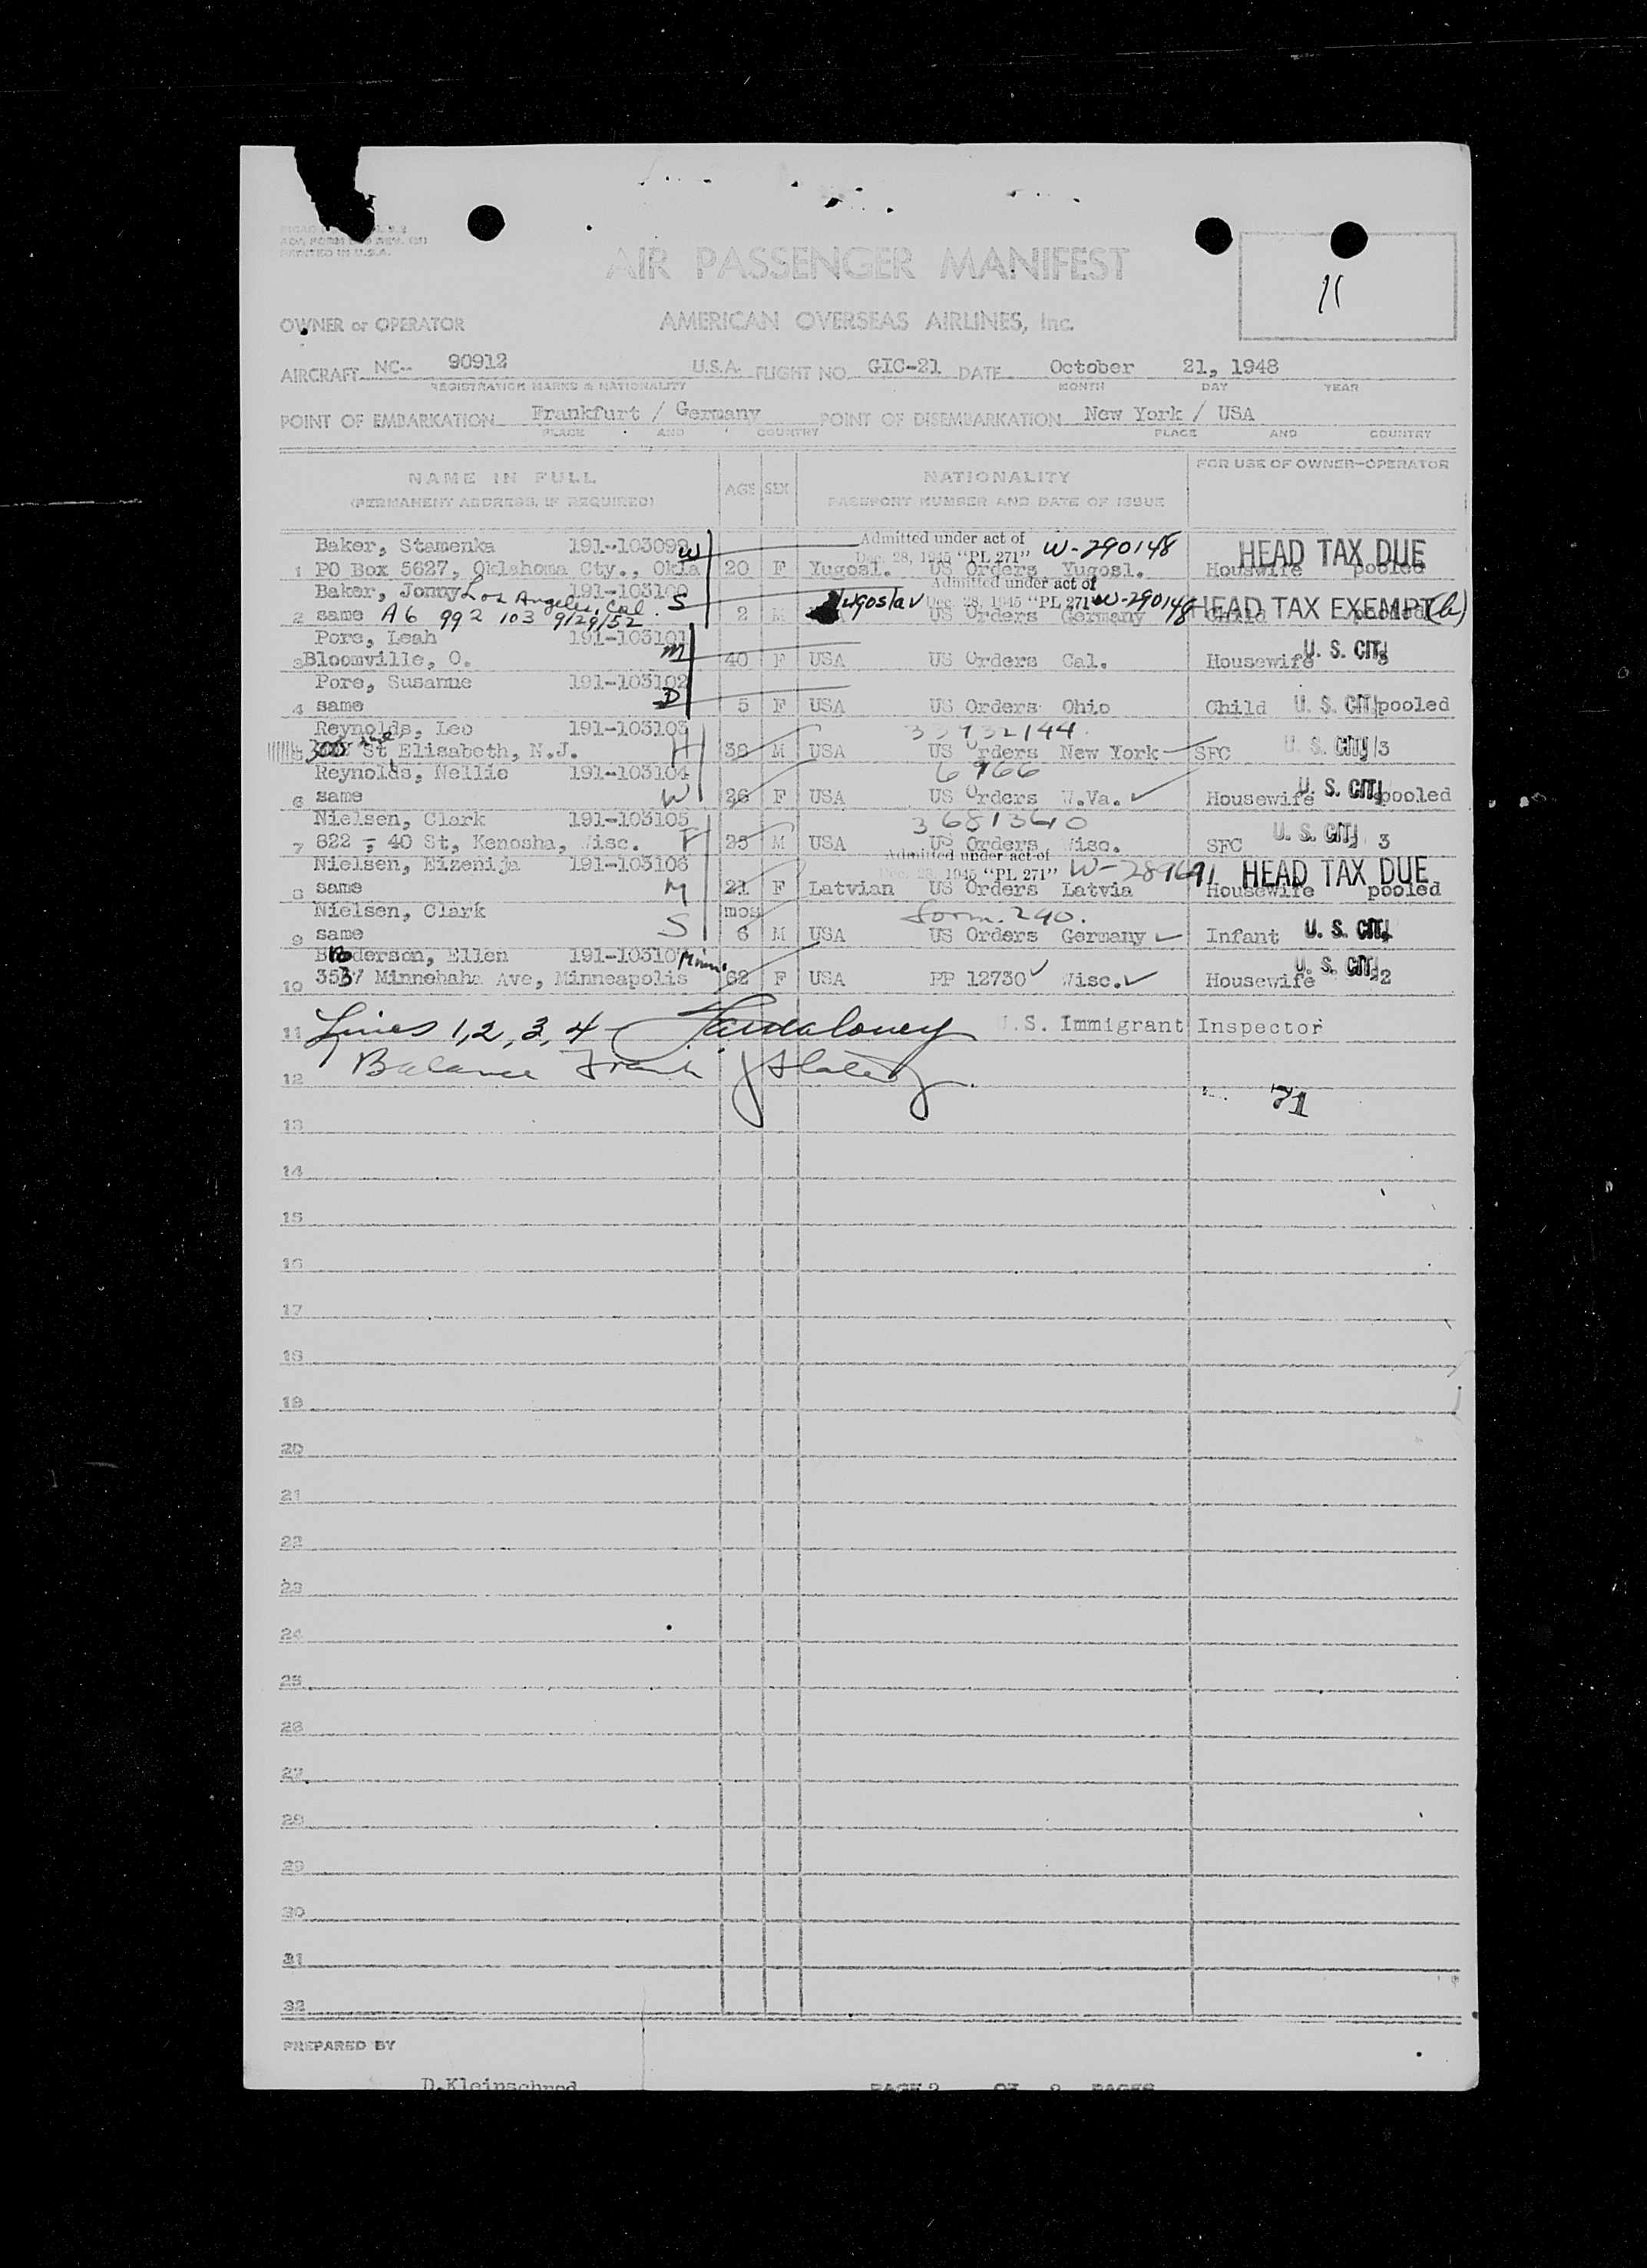 PRINTED IN U.S.A.
AIR PASSENGER MANIFEST
11
OWNER or OPERATOR AMERICAN OVERSEAS AIRLINES, Inc.
AIRCRAFT NC-- 90912 U.S.A. FLIGHT NO. GIC-21 DATE October 21, 1948
REGISTRATION MARKS & NATIONALITY MONTH DAY YEAR
POINT OF EMBARKATION Frankfurt / Germany POINT OF DISEMBARKATION New York / USA
PLACE AND COUNTRY PLACE AND COUNTRY
NAME IN FULL AGE SEX NATIONALITY FOR USE OF OWNER-OPERATOR
(PERMANENT ADDRESS, IF REQUIRED) PASSPORT NUMBER AND DATE OF ISSUE
Baker, Stamenka 191-103099 W Admitted under act of Dec. 28, 1945 "PL 271" W-290148 HEAD TAX DUE
1 PO Box 5627, Oklahoma Cty., Okla 20 F Yugosl. US Orders Yugosl. Houswife pooled
Baker, Jonny Los Angeles, Cal. 191-103100 S Admitted under act of Dec. 28, 1945 "PL 271" W-290148 HEAD TAX EXEMPT (b)
2 same A6 992 103 9/29/52 2 M Yugoslav US Orders Germany Child pooled
Pore, Leah 191-103101 M
3 Bloomville, O. 40 F USA US Orders Cal. Housewife U. S. CIT.
Pore, Susanne 191-103102 D
4 same 5 F USA US Orders Ohio Child U. S. CIT. pooled
Reynolds, Leo 191-103103 H
St Elisabeth, N.J. 38 M USA US Orders New York SFC U. S. CIT. 3
Reynolds, Nellie 191-103104 6966
6 same W 26 F USA US Orders W.Va. Housewife U. S. CIT. pooled
Nielsen, Clark 191-103105 36813610
7 822 - 40 St, Kenosha, Wisc. F 25 M USA US Orders Wisc. SFC U. S. CIT. 3
Nielsen, Eizenija 191-103106 Admitted under act of Dec. 28, 1945 "PL 271" W-289691 HEAD TAX DUE
8 same M 21 F Latvian US Orders Latvia Housewife pooled
Nielsen, Clark mos form. 240.
9 same S 6 M USA US Orders Germany Infant U. S. CIT.
Broderson, Ellen 191-103107 Minn.
10 3537 Minnehaha Ave, Minneapolis 62 F USA PP 12730 Wisc. Housewife U. S. CIT. 2
11 Lines 1,2,3,4 U.S. Immigrant Inspector
12 Balance Frank J
71
13
14
15
16
17
18
19
20
21
22
23
24
25
26
27
28
29
30
31
32
PREPARED BY
D.Kleinschrod PAGE 2 OF 2 PAGES